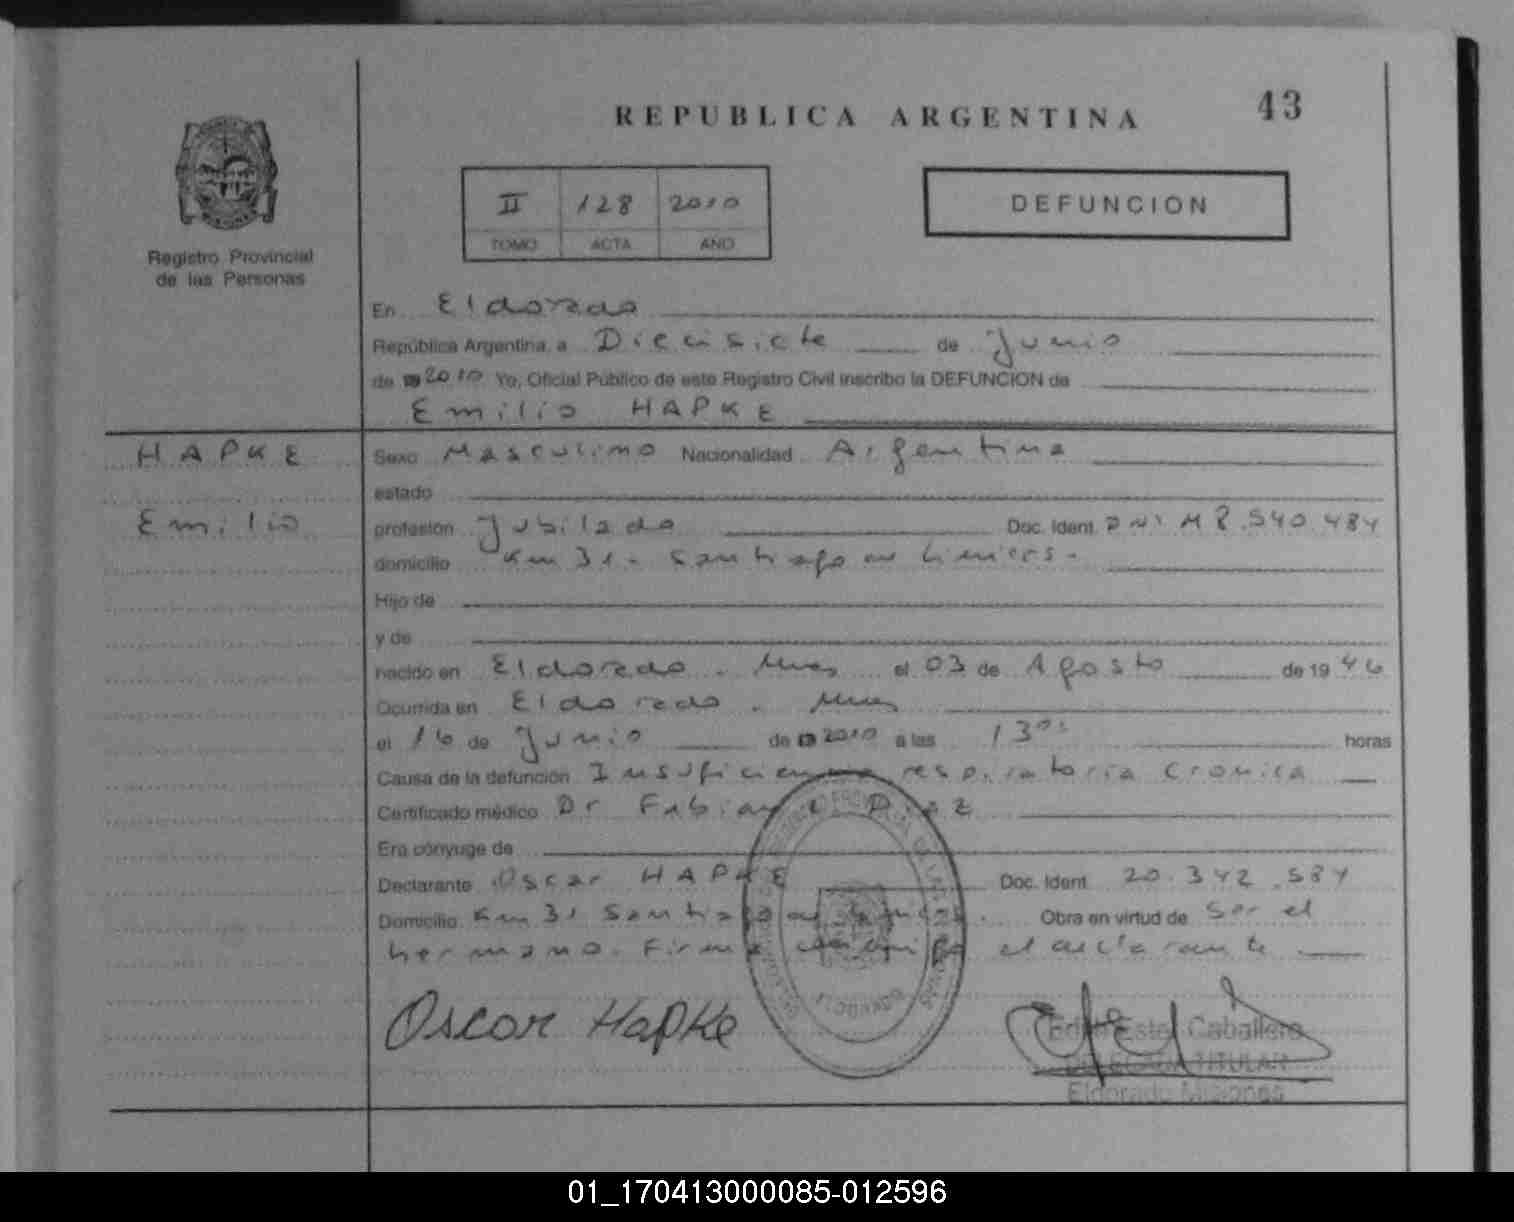 REPUBLICA ARGENTINA
43
II 128 2010
TOMO ACTA AÑO
DEFUNCION
Registro Provincial
de las Personas
En Eldorado
República Argentina, a Diecisiete de Junio
de 2010 Yo, Oficial Público de este Registro Civil inscribo la DEFUNCION de
Emilio HAPKE
HAPKE
Emilio
Sexo Masculino Nacionalidad Argentina
estado
profesión Jubilado Doc. Ident. DNI M 8.540.484
domicilio Km 31 - Santiago de Liniers -
Hijo de
y de
nacido en Eldorado - Mnes el 03 de Agosto de 1946
Ocurrida en Eldorado - Mnes
el 16 de Junio de 2010 a las 13 horas
Causa de la defunción Insuficiencia respiratoria Cronica
Certificado médico Dr Fabian Diaz
Era cónyuge de
Declarante Oscar HAPKE Doc. Ident. 20.342.584
Domicilio Km 31 Santiago de Liniers - Obra en virtud de Ser el
hermano. Firma conmigo el declarante
Oscar Hapke
Edith Estel Caballero
DELEGADA TITULAR
Eldorado Misiones
ELDORADO
01_170413000085-012596